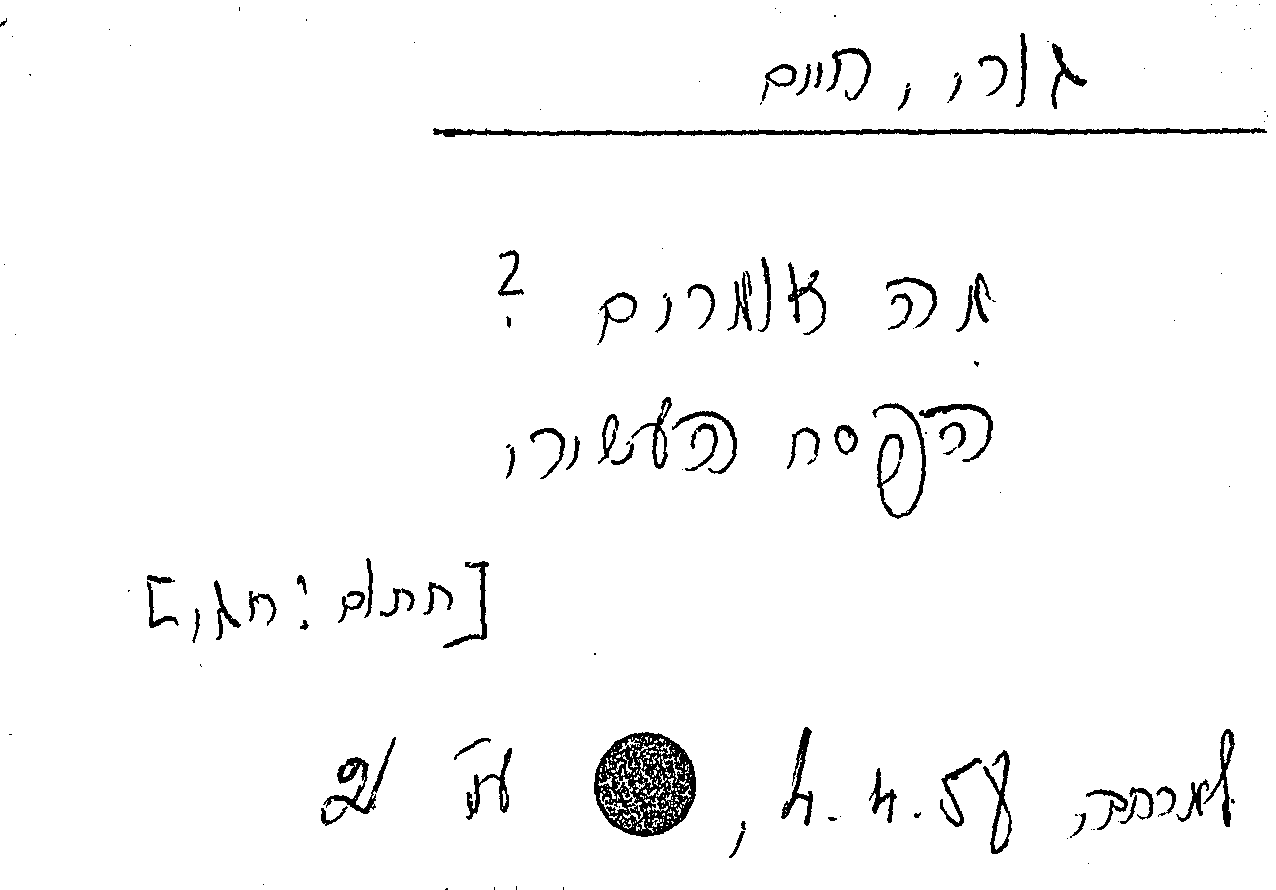 גורי, חיים
מה אומרים?
הפסח העשירי
[חתום: חג.]
למרחב, 4.4.58, עמ 2